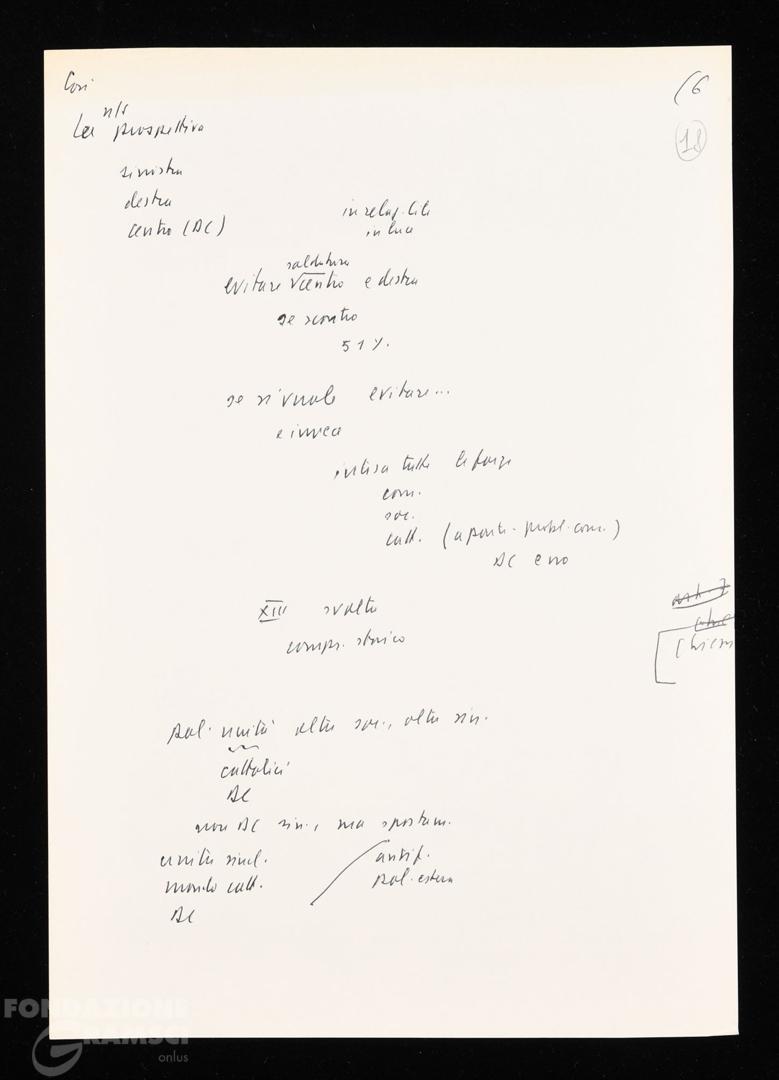 Così
(6
18
n/s
La prospettiva
sinistra
destra
centro (DC)
in luce
saldatura
evitare √centro e destra
se scontro
51%.
se si vuole evitare...
e invece
intesa tutte le forze
com.
soc.
catt. (a parte - probl. com.)
DC e no
XIII svolta
compr. storico
pol. unità oltre soc., oltre sin.
cattolici
DC
non DC sin., ma spostam.
unità sind.
mondo catt.
DC
antif.
pol. estera
FONDAZIONE
GRAMSCI
onlus